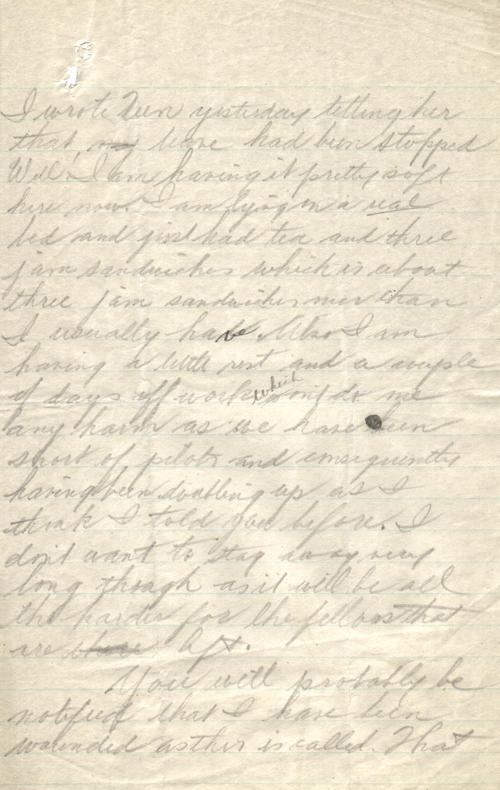 I wrote Leen yesterday telling her
that my leave had been stopped
Well, I am having it pretty soft
here now. I am lying in a real
bed and just had tea and three
jam sandwiches which is about
three jam sandwiches more than
I usually have. Also I am
having a little rest and a couple
of days off work which wont do me
any harm as we have been
short of pilots and consequently
having been doubling up as I
think I told you before. I
don't want to stay away very
long though as it will be all
the harder for the fellows that
are left.
You will probably be
notified that I have been
wounded as this is called. That